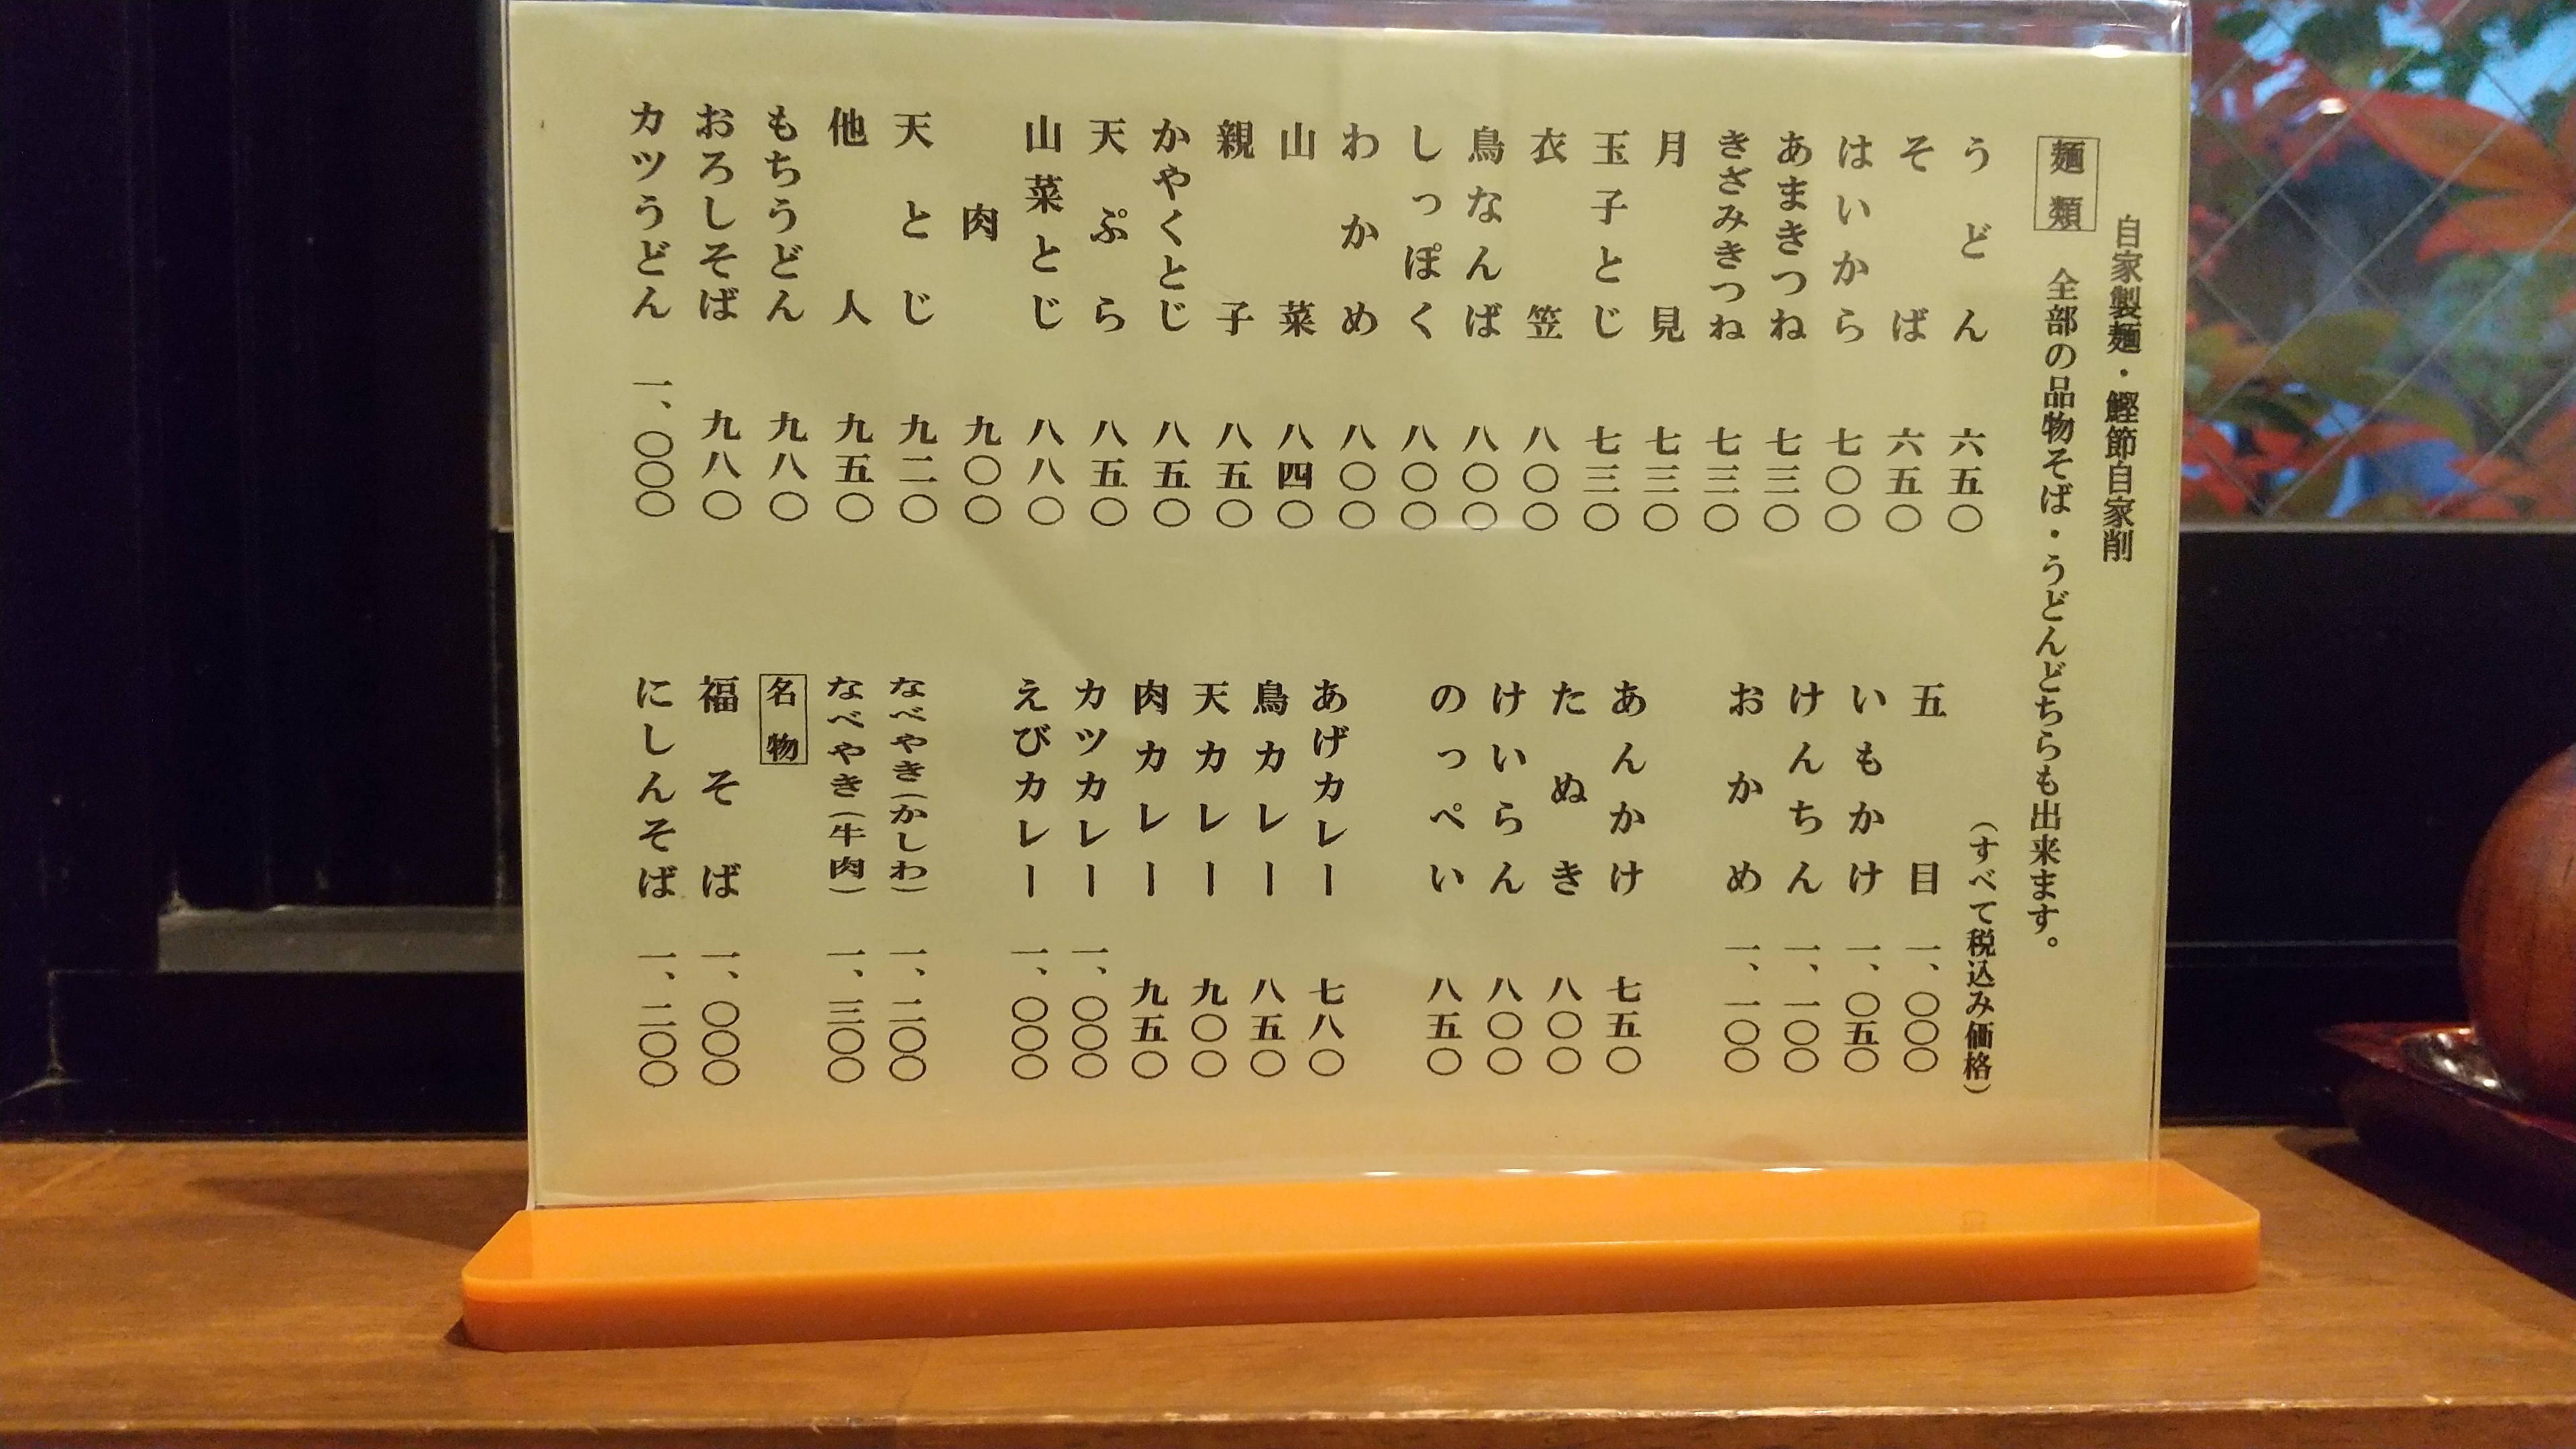 自家製麺・鰹節自家削
麺類 全部の品物そば・うどんどちらも出来ます。
(すべて税込み価格)
うどん 六五〇
そば 六五〇
はいから 七〇〇
あまきつね 七三〇
きざみきつね 七三〇
月見 七三〇
玉子とじ 七三〇
衣笠 八〇〇
鳥なんば 八〇〇
しっぽく 八〇〇
わかめ 八〇〇
山菜 八四〇
親子 八五〇
かやくとじ 八五〇
天ぷら 八五〇
山菜とじ 八八〇
肉 九〇〇
天とじ 九二〇
他人 九五〇
もちうどん 九八〇
おろしそば 九八〇
カツうどん 一、〇〇〇
五目 一、〇〇〇
いもかけ 一、〇五〇
けんちん 一、一〇〇
おかめ 一、一〇〇
あんかけ 七五〇
たぬき 八〇〇
けいらん 八〇〇
のっぺい 八五〇
あげカレー 七八〇
鳥カレー 八五〇
天カレー 九〇〇
肉カレー 九五〇
カツカレー 一、〇〇〇
えびカレー 一、〇〇〇
なべやき(かしわ) 一、二〇〇
なべやき(牛肉) 一、三〇〇
名物
福そば 一、〇〇〇
にしんそば 一、二〇〇